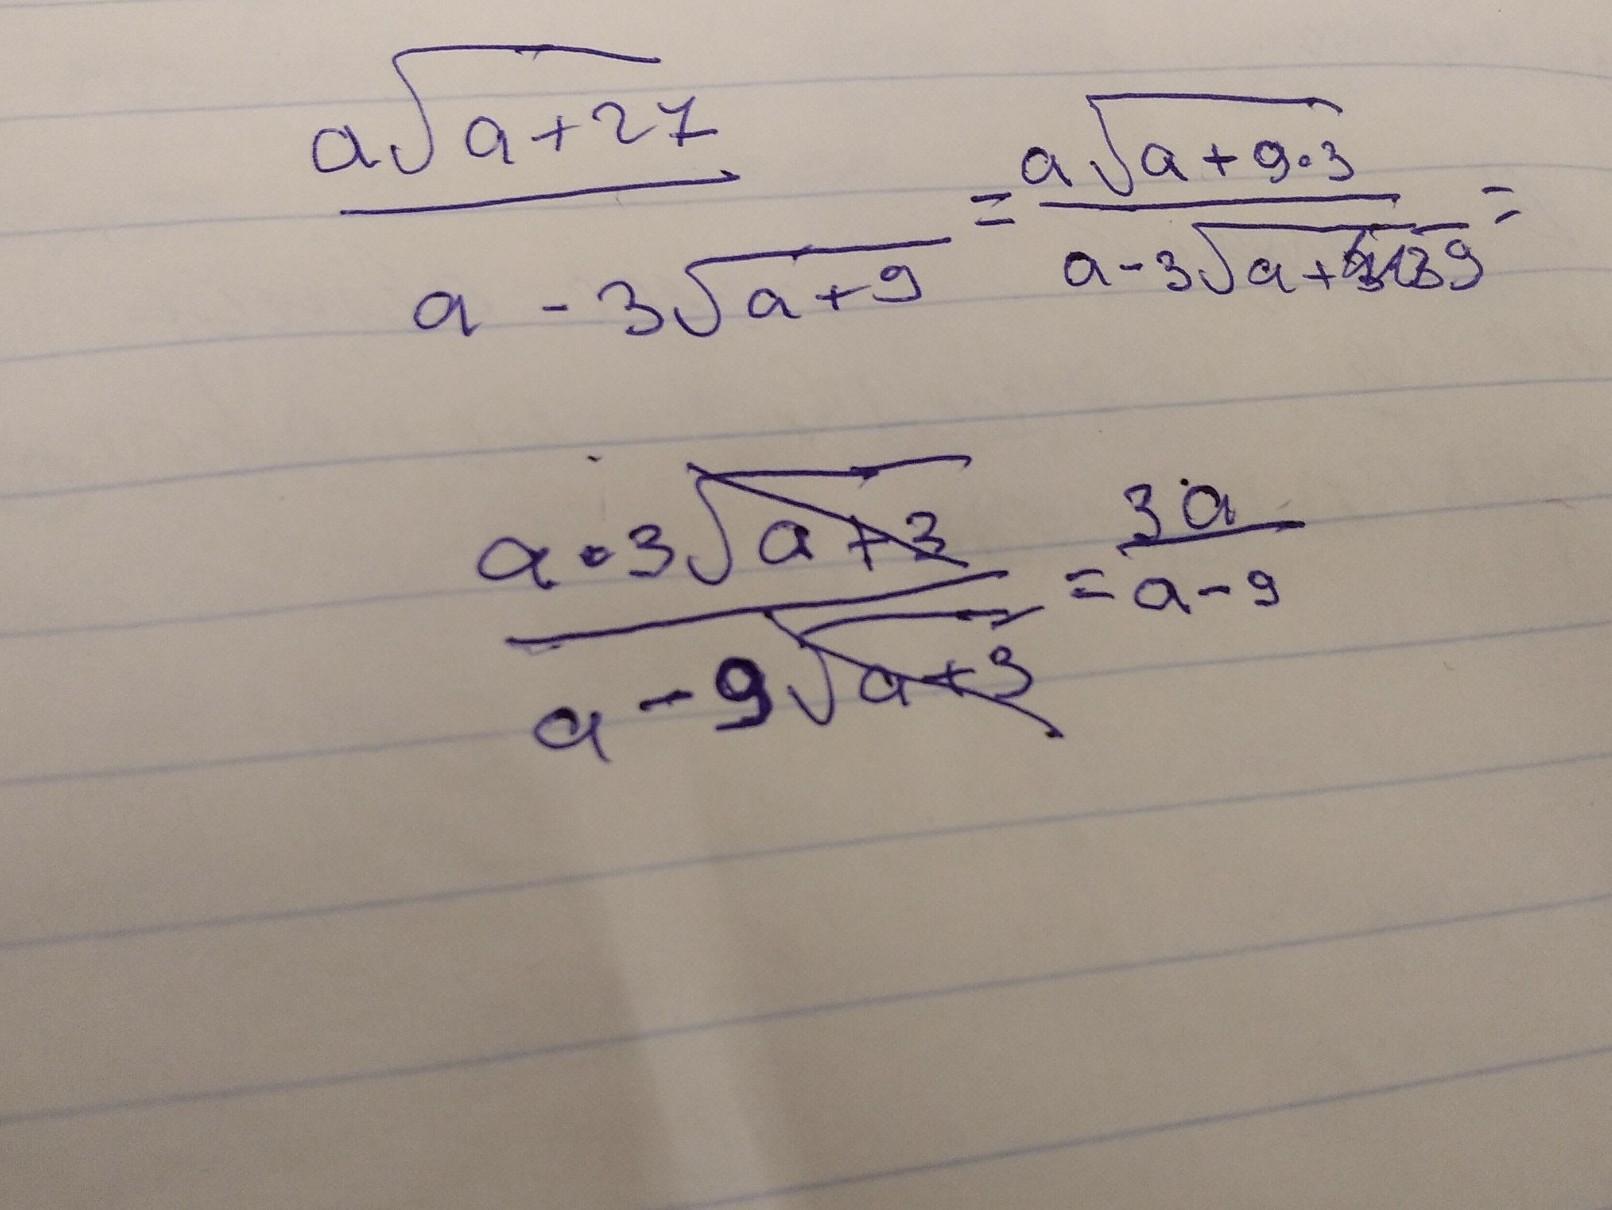 a√(a+27) / (a - 3√(a+9)) = a√(a+9·3) / (a-3√(a+9)) =
a·3√(a+3) / (a-9√(a+3)) = 3a / (a-9)